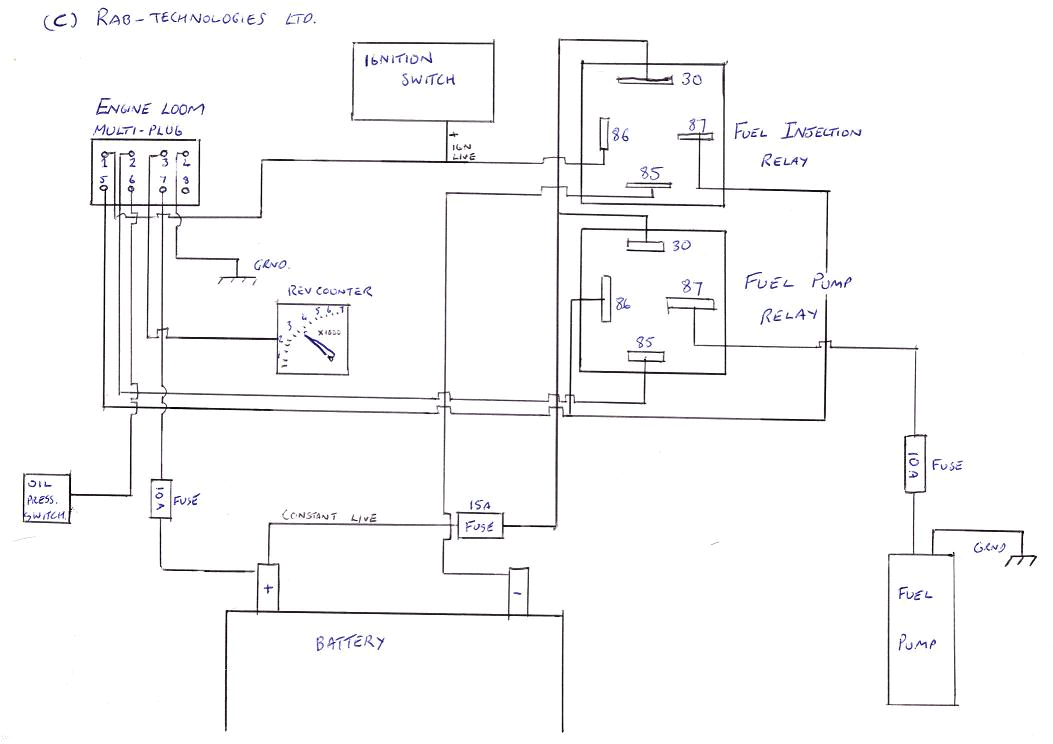 (C) RAB-TECHNOLOGIES LTD.
IGNITION
SWITCH
+
IGN
LIVE
ENGINE LOOM
MULTI-PLUG
1 2 3 4
5 6 7 8
30
86
87
85
FUEL INJECTION
RELAY
30
86
87
85
FUEL PUMP
RELAY
GRND.
REV COUNTER
1 2 3 4 5 6 7
X1000
OIL
PRESS.
SWITCH.
10A
FUSE
CONSTANT LIVE
15A
FUSE
10A
FUSE
+
-
BATTERY
GRND
FUEL
PUMP